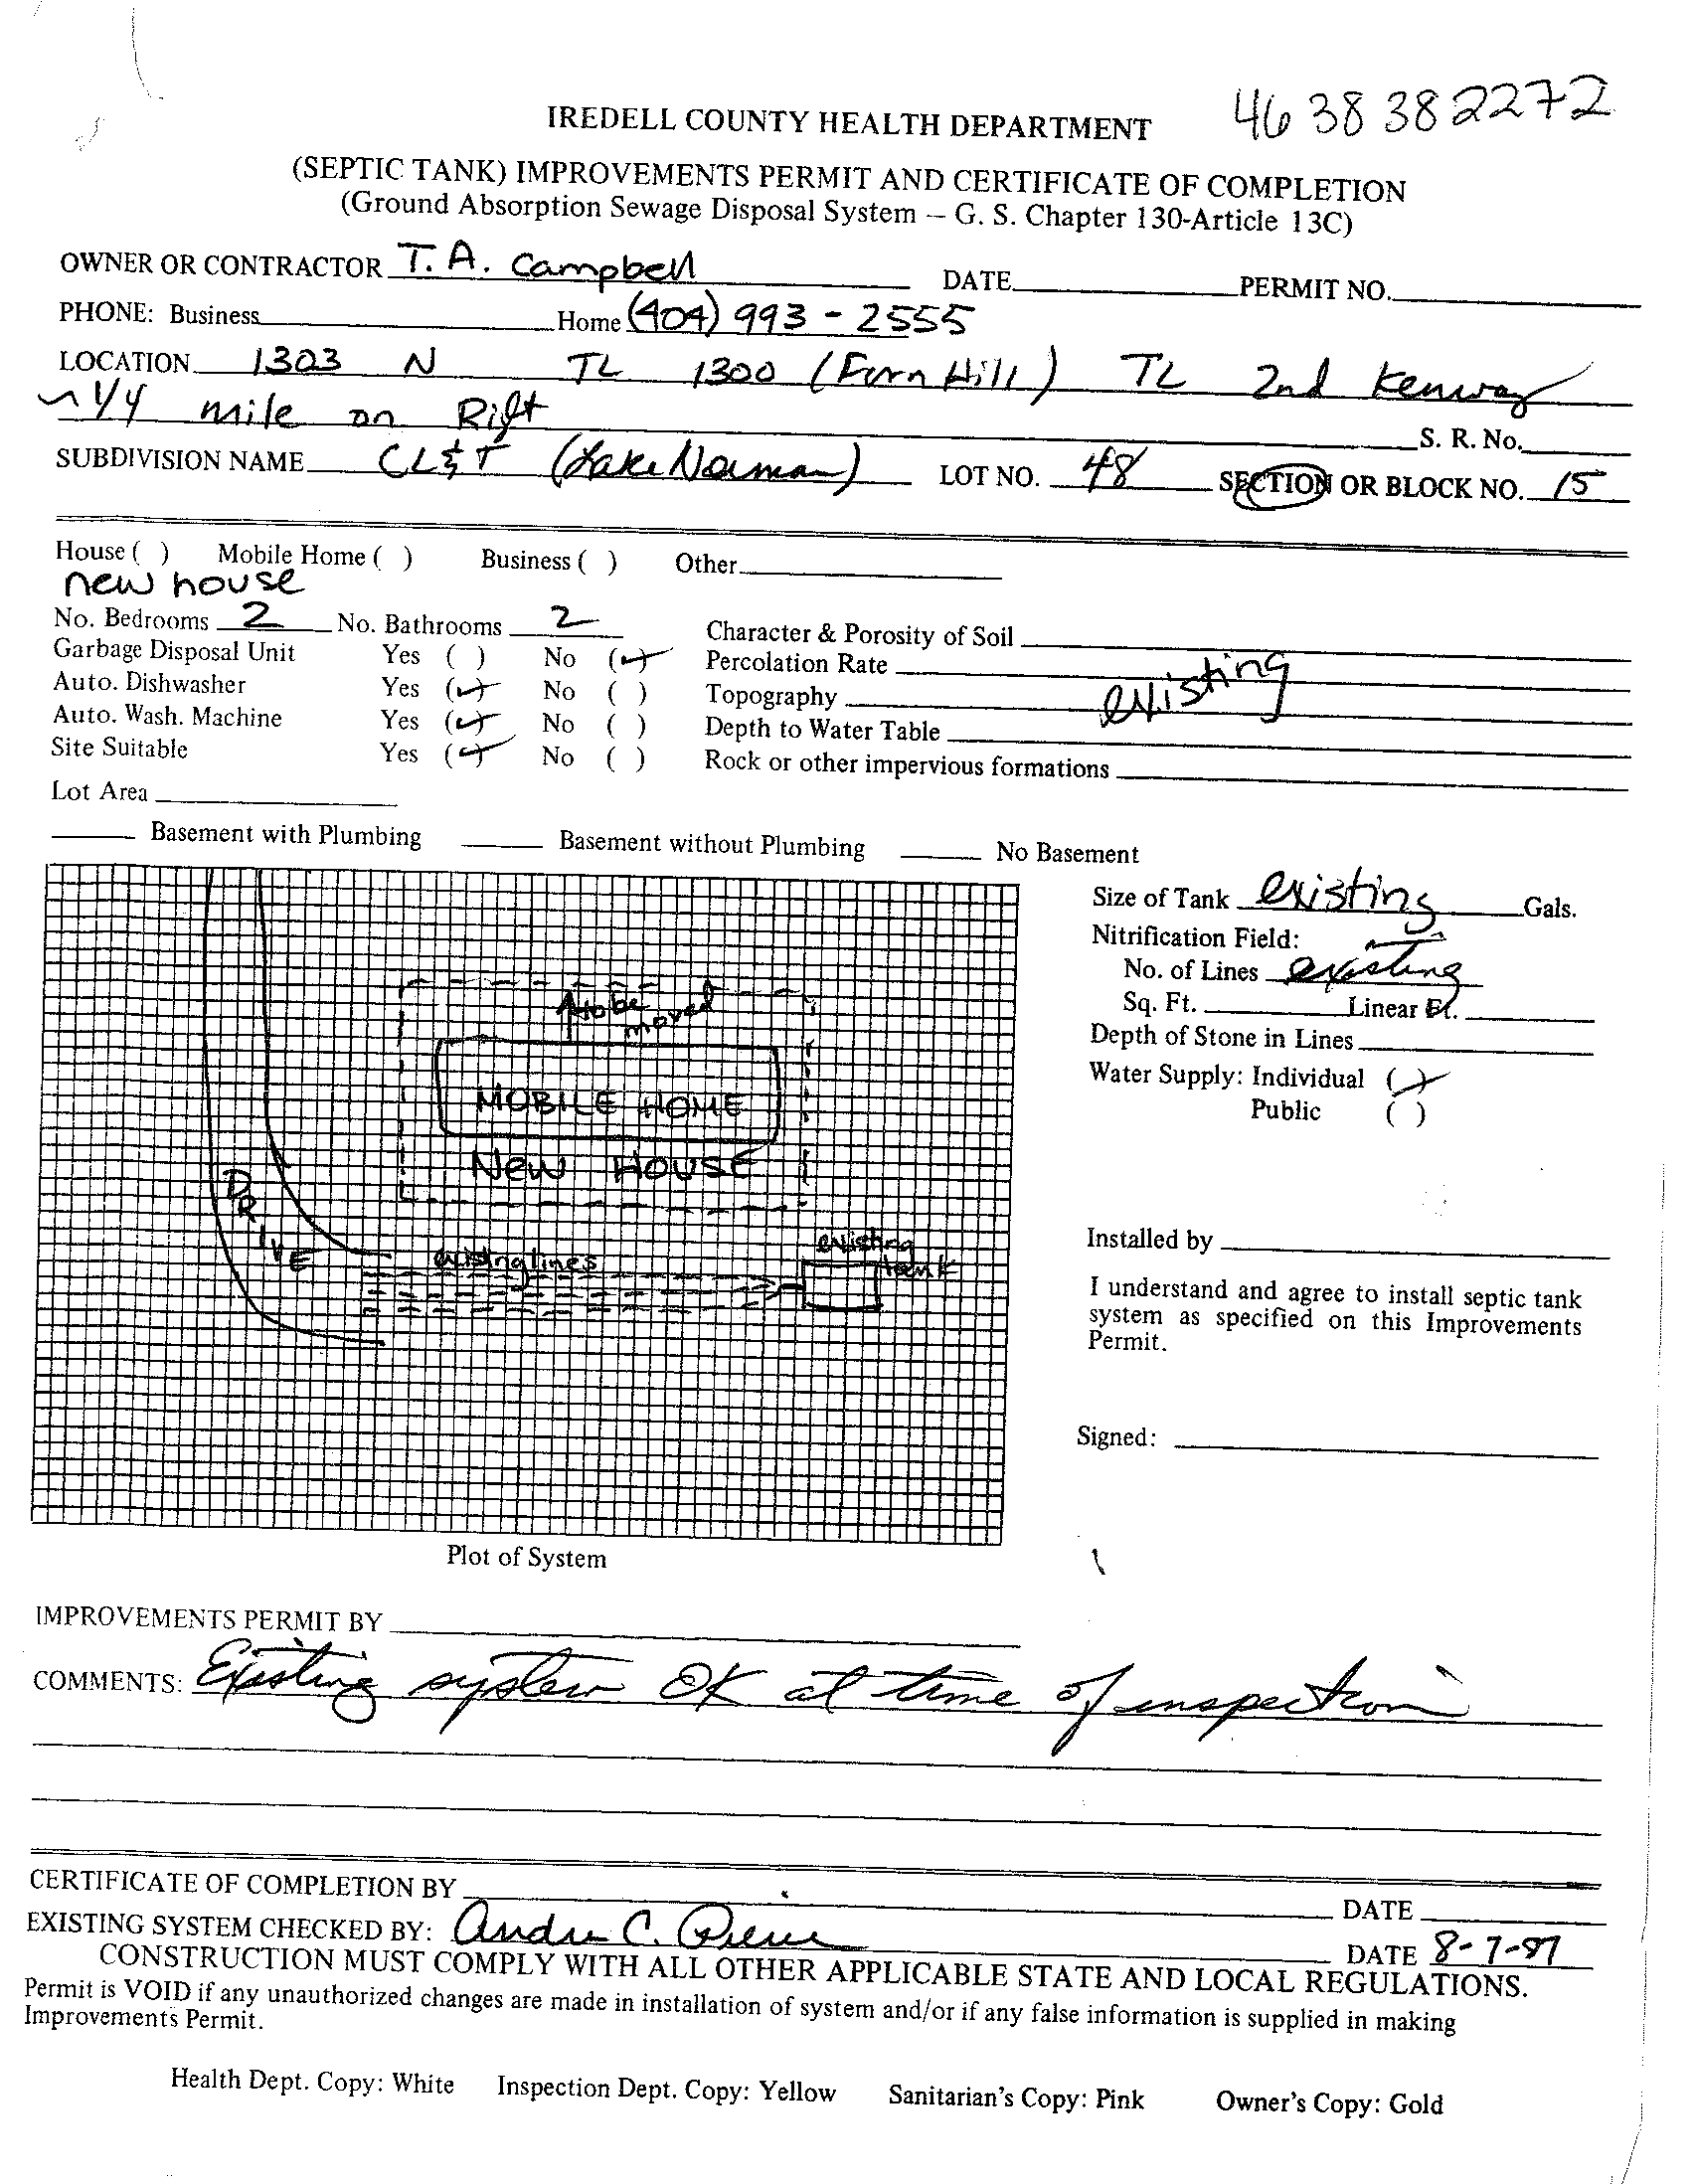 46 38 38 2272
IREDELL COUNTY HEALTH DEPARTMENT
(SEPTIC TANK) IMPROVEMENTS PERMIT AND CERTIFICATE OF COMPLETION
(Ground Absorption Sewage Disposal System – G. S. Chapter 130-Article 13C)
OWNER OR CONTRACTOR T. A. Campbell DATE PERMIT NO.
PHONE: Business Home (404) 993 - 2555
LOCATION 1303 N TL 1300 (Fern Hill) TL 2nd Kenway
~ 1/4 mile on Right
S. R. No.
SUBDIVISION NAME CL&T (Lake Norman) LOT NO. 48 SECTION OR BLOCK NO. 15
House ( ) Mobile Home ( ) Business ( ) Other
new house
No. Bedrooms 2 No. Bathrooms 2 Character & Porosity of Soil
Garbage Disposal Unit Yes ( ) No (✓) Percolation Rate
existing
Auto. Dishwasher Yes (✓) No ( ) Topography
Auto. Wash. Machine Yes (✓) No ( ) Depth to Water Table
Site Suitable Yes (✓) No ( ) Rock or other impervious formations
Lot Area
Basement with Plumbing Basement without Plumbing No Basement
Size of Tank existing Gals.
Nitrification Field:
No. of Lines existing
Sq. Ft. Linear Ft.
Depth of Stone in Lines
Water Supply: Individual (✓)
Public ( )
to be
moved
MOBILE HOME
NEW HOUSE
DRIVE
existing lines
existing
tank
Installed by
I understand and agree to install septic tank
system as specified on this Improvements
Permit.
Signed:
Plot of System
IMPROVEMENTS PERMIT BY
COMMENTS: Existing system OK at time of inspection
CERTIFICATE OF COMPLETION BY DATE
EXISTING SYSTEM CHECKED BY: C. DATE 8-7-87
CONSTRUCTION MUST COMPLY WITH ALL OTHER APPLICABLE STATE AND LOCAL REGULATIONS.
Permit is VOID if any unauthorized changes are made in installation of system and/or if any false information is supplied in making
Improvements Permit.
Health Dept. Copy: White Inspection Dept. Copy: Yellow Sanitarian's Copy: Pink Owner's Copy: Gold